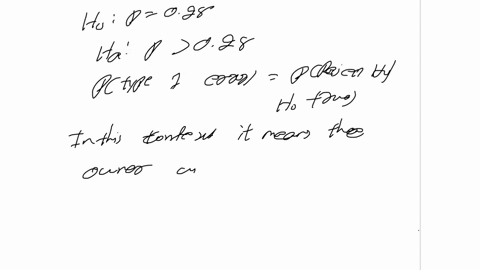 H₀: p = 0.28
Ha: p > 0.28
P(type 1 error) = P(Reject H₀/
H₀ true)
In this context it means the
owner